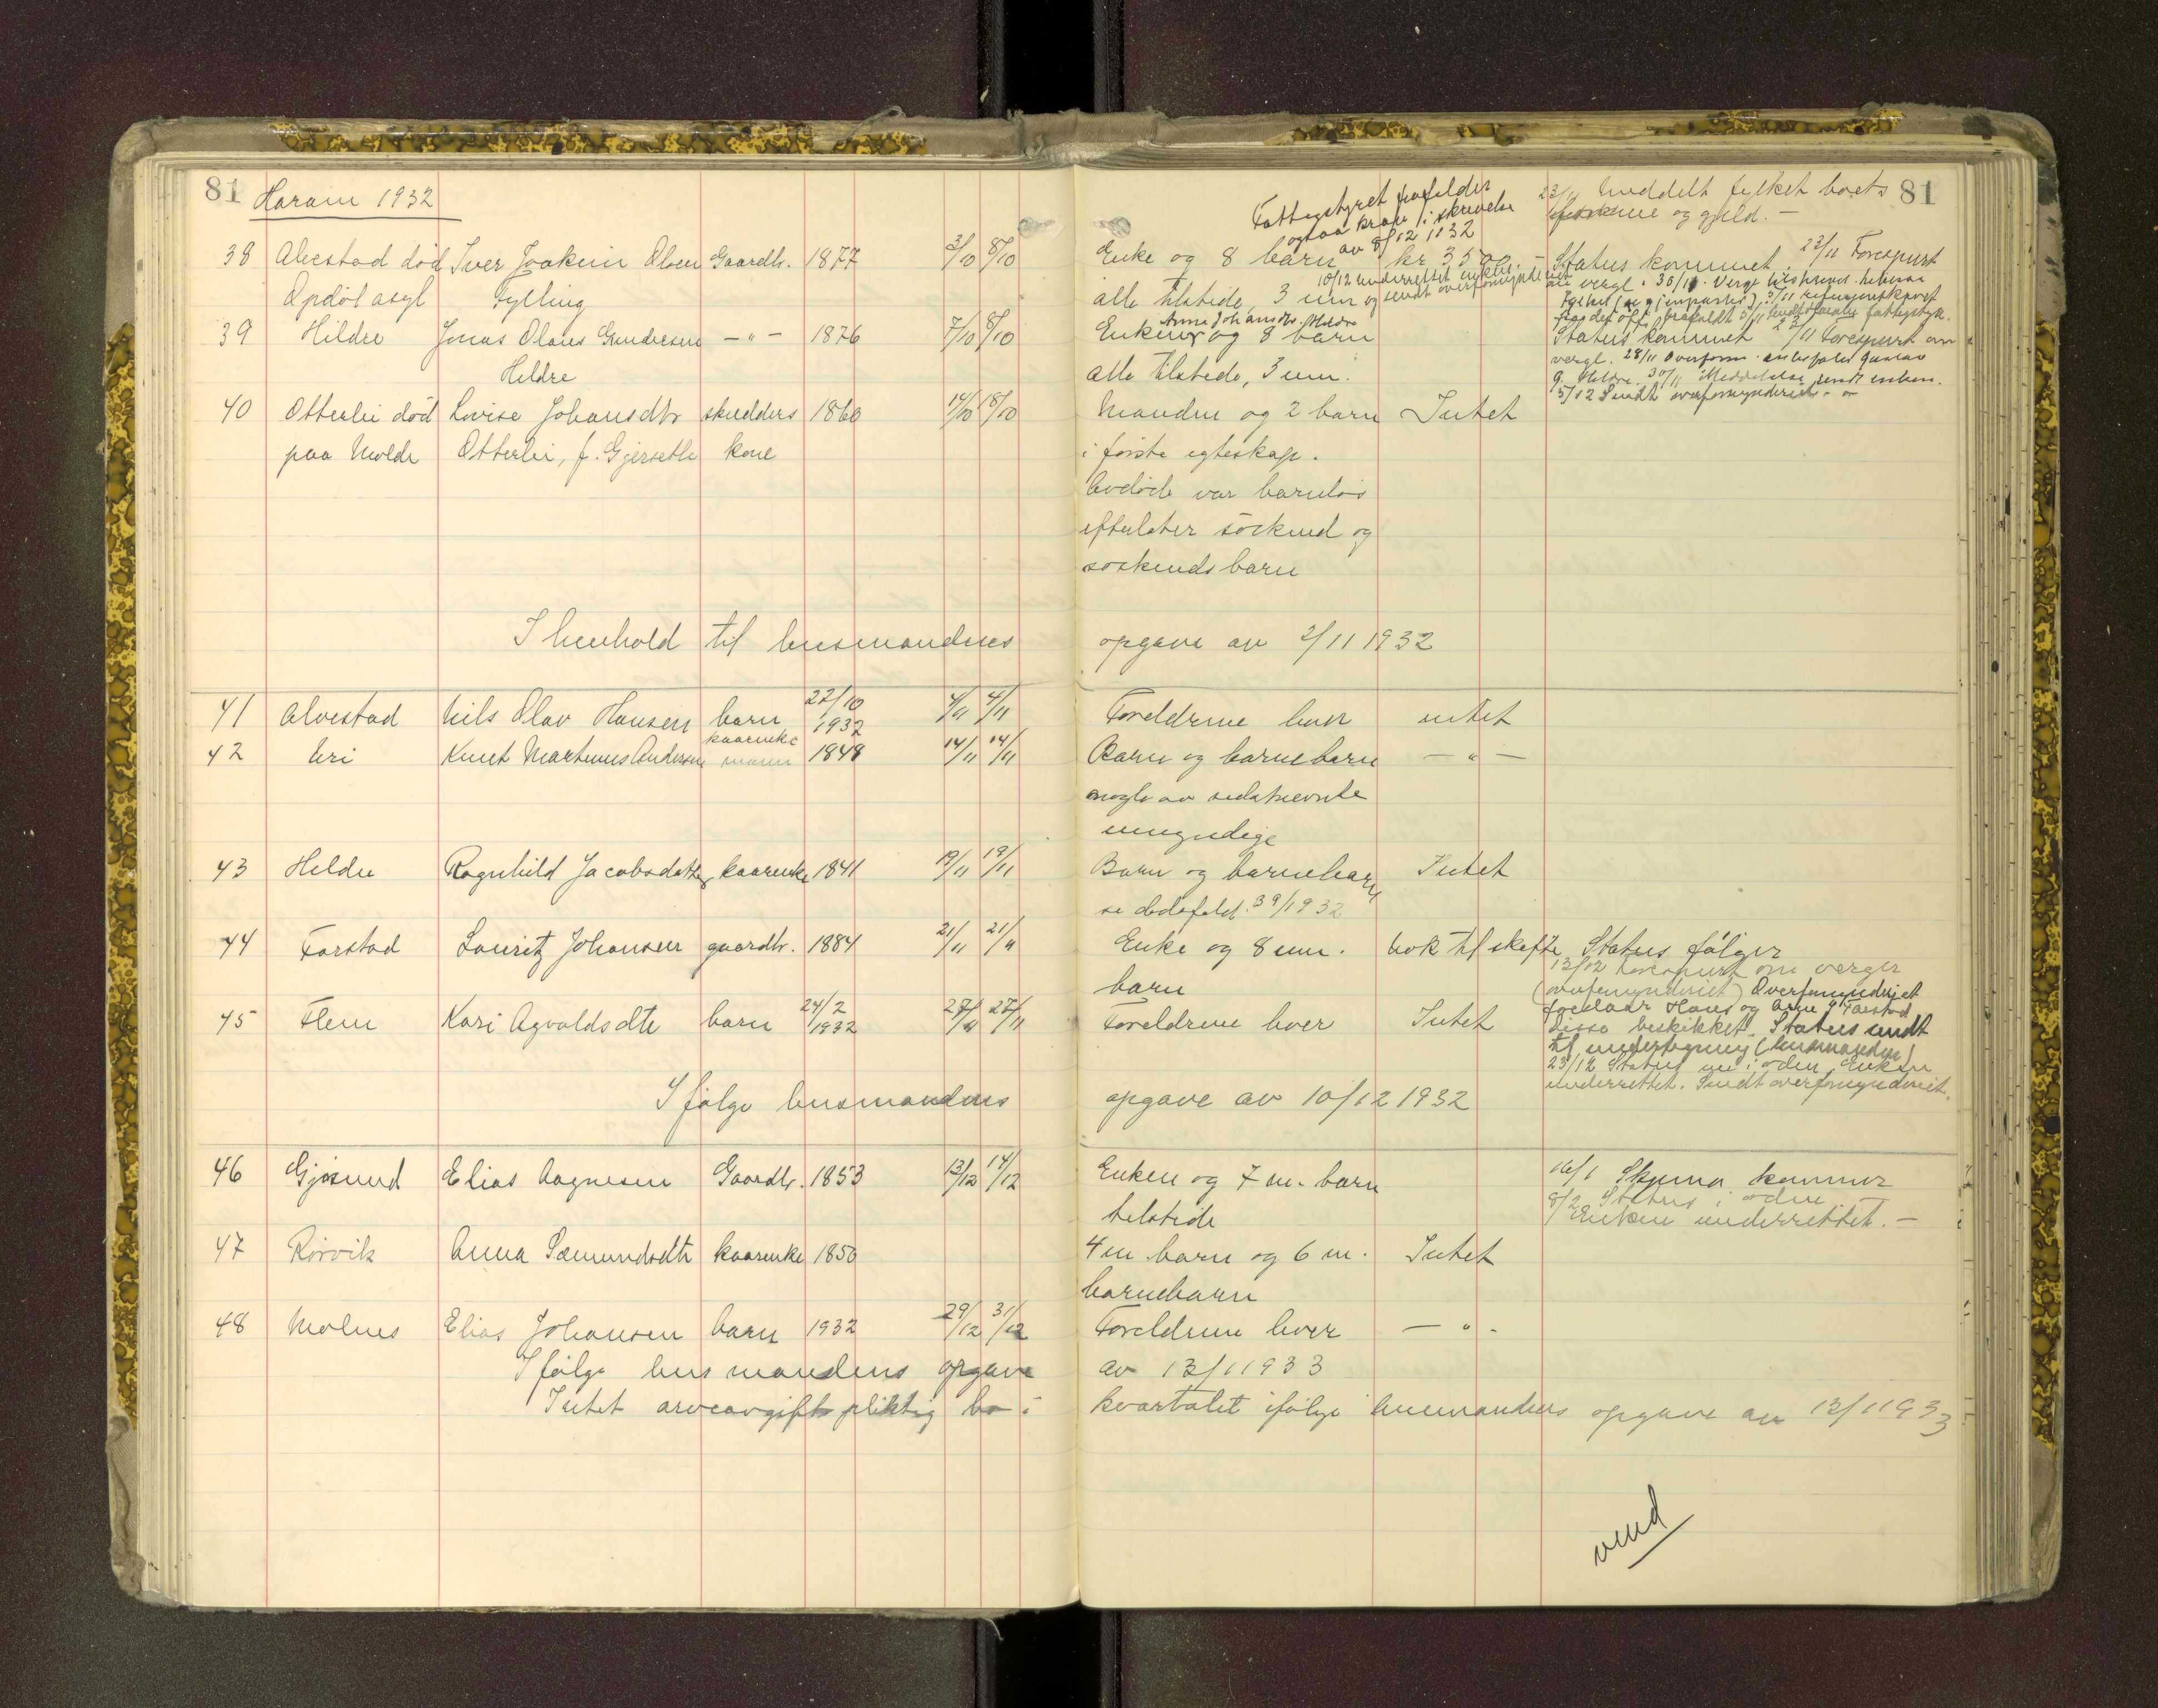 81
Haram 1932
38 Alvestad død Iver Joakim Olsen Gaardbr. 1877 3/10 8/10
Opdøl asyl Fylling
39 Hildre Jonas Olaus Gundersen — " — 1876 7/10 8/10
Hildre
40 Otterlei død Lovise Johansdtr skredders 1860 14/10 8/10
paa Molde Otterlei, f. Gjersethe kone
I henhold til lensmandens
41 Alvestad Nils Olav Hansen barn 22/10 1932 4/11 4/11
42 Uri Knut Martinus Andersen kaarenke mann 1848 14/11 14/11
43 Hildre Ragnhild Jacobsdatter kaarenke 1841 19/11 19/11
44 Farstad Lauritz Johansen gaardbr. 1884 21/11 21/11
45 Flem Kari Agvaldsdtr barn 24/2 1932 27/11 27/11
Ifølge lensmandens
46 Gjøsund Elias Aagnesen Gaardbr. 1853 13/12 14/12
47 Rørvik Anna Sæmundsdtr kaarenke 1850
48 Molnes Elias Johansen barn 1932 29/12 31/12
Ifølge lensmandens opgave
Intet arveavgiftspliktig bo i
81
Fattigstyret
ogsaa krav i skrivelse
av 8/12 1932
23/11 meddelt fylket boets
og gjeld. —
Enke og 8 barn kr 3500. — Status kommet. 23/11 Forespurt
10/12 underrettet enken. og sendt overformynderiet
alle tilstede, 3 um
om verge. 30/11. Verge
Anna Johansdtr. Hildre
Enken og 8 barn
Status kommet 23/11 Forespurt om
verge. 28/11 Overform. anbefaler Gustav
alle tilstede, 3 um.
G. Hildre. 30/11 Meddelelse sendt enken.
5/12 Sendt overformynderiet. —
Manden og 2 barn Intet
i første egteskap.
Avdøde var barnløs
efterlater søskend og
søskends barn
opgave av 2/11 1932
Foreldrene lever intet
Barn og barnebarn — " —
nogle av sidstnevnte
umyndige
Barn og barnebarn Intet
se dødsfald. 39/1932
Enke og 8 um. Nok til skifte Status følger
barn
13/12 Forespurt om verger
(overformynderiet) Overformynderiet
foreslaar Hans og Arne J Farstad
disse beskikket. Status sendt
til undertegning (lensmanden)
23/12 Status i orden, Enken
underrettet. Sendt overformynderiet.
Foreldrene lever Intet
opgave av 10/12 1932
Enken og 7 m. barn
tilstede
16/1 Skjema kommer
8/2 Status i orden
Enken underrettet. —
4 m barn og 6 m. Intet
barnebarn
Foreldrene lever — " -
av 13/1 1933
kvartalet ifølge lensmandens opgave av 13/1 1933
vend